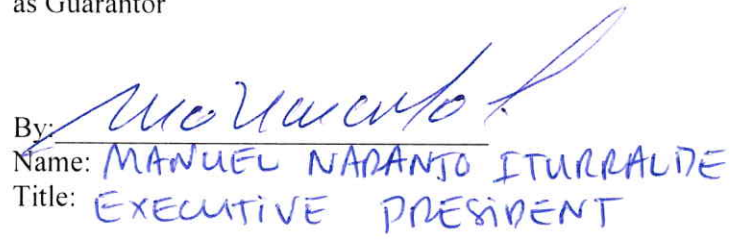 as Guarantor
By:
Name: MANUEL NARANJO ITURRALDE
Title: EXECUTIVE PRESIDENT